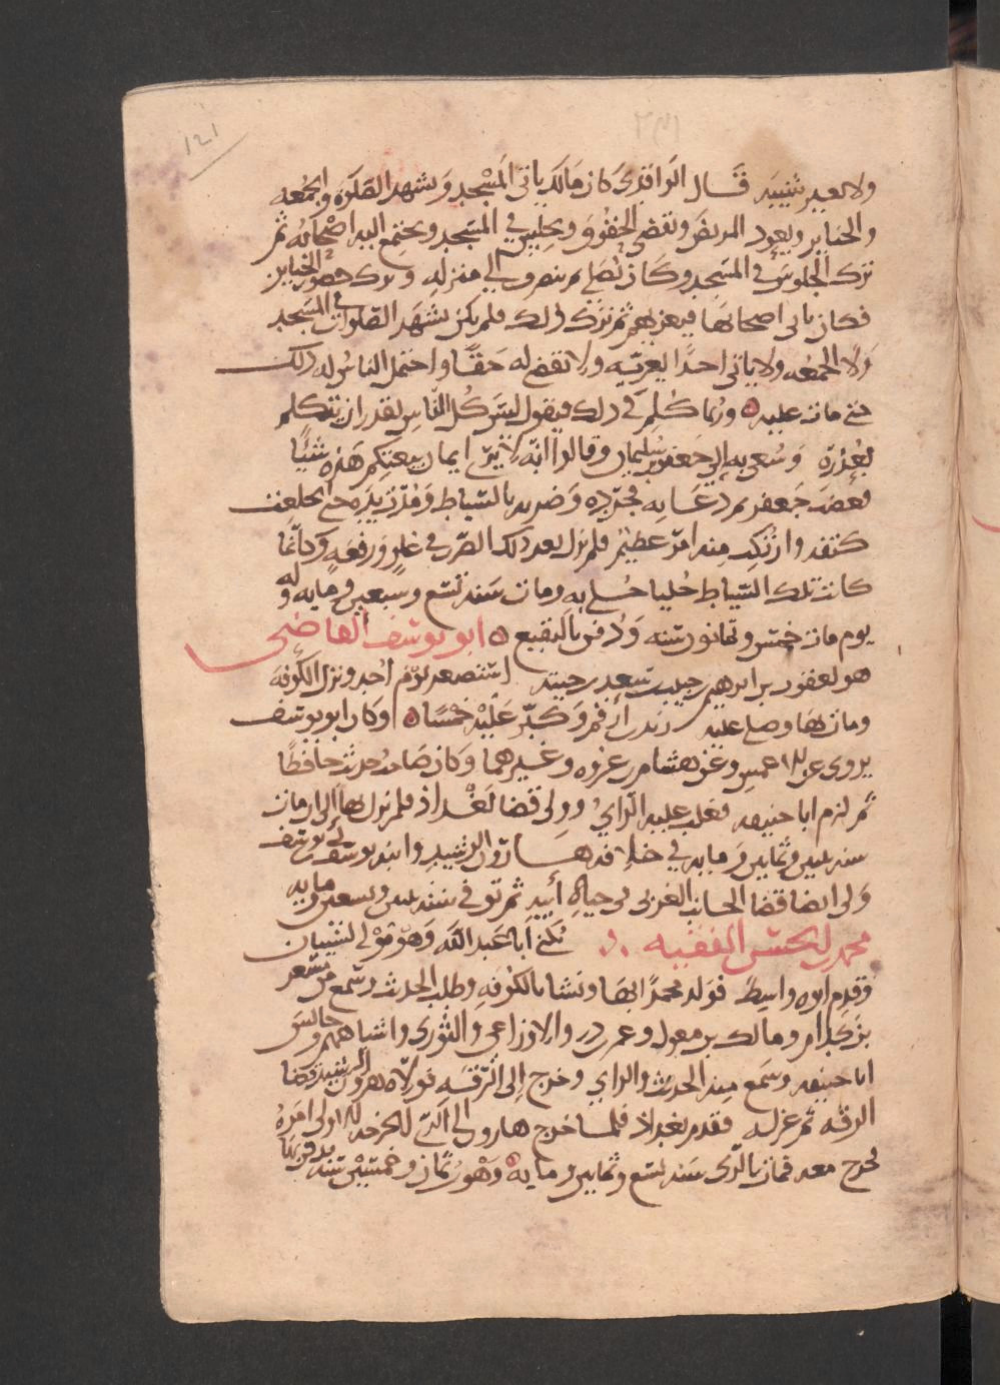 ١٢١
ولا لغير شيبه قال الواقدي كان مالك ياتي المسجد ويشهد الصلوة والجمعه
والجنايز ويعود المريض ويقضي الحقوق ويجلس في المسجد ويجتمع اليه اصحابه ثم
ترك الجلوس في المسجد وكان يصلي ثم ينصرف الي منزله وترك حضور الجنايز
فكان ياتي اصحابها فيعزيهم ثم ترك ذلك فلم يكن يشهد الصلوات في المسجد
ولا الجمعه ولا ياتي احدا يعزيه ولا يقضي له حقا واحتمل الناس له ذلك
حتي مات عليه وربما كلم في ذلك فيقول ليس كل الناس يقدر ان يتكلم
بعذره وسعي به الي جعفر بن سليمان وقالوا انه لا يري ايمان بيعتكم هذه شيا
فغضب جعفر ثم دعا به فجرده وضربه بالسياط ومدت يده حتي انخلعت
كتفه وارتكب منه امر عظيم فلم يزل بعد ذلك الضرب في علو ورفعه وكانما
كانت تلك السياط حليا حلي به ومات سنه تسع وسبعين ومايه وله
يوم مات خمس وثمانون سنه ودفن بالبقيع ابو يوسف القاضي
هو يعقوب بن ابرهيم بن حبيب بن سعد بن حبته استصغر يوم احد ونزل الكوفة
ومات بها وصلي عليه زيد بن ارقم وكبر عليه خمسا وكان ابو يوسف
يروي عن الاعمش وعن هشام بن عروه وغيرهما وكان صاحب حديث حافظا
ثم لزم ابا حنيفه فغلب عليه الراي وولي قضا بغداذ فلم يزل بها الي ان مات
سنه اثنين وثمانين ومايه في خلافه هارون الرشيد وابنه يوسف بن ابي يوسف
ولي ايضا قضا الجانب الغربي في حياة ابيه ثم توفي سنه اثنين وتسعين ومايه
محمد بن الحسن الفقيه يكني ابا عبد الله وهو مولي لشيبان
وقدم ابوه واسط فولد محمدا بها ونشا بالكوفه وطلب الحديث وسمع من مسعر
بن كدام ومالك بن مغول وعمر بن ذر والاوزاعي والثوري واشباههم وجالس
ابا حنيفه وسمع منه الحديث والراي وخرج الي الرقه فولاه هرون الرشيد قضا
الرقه ثم عزله فقدم بغداذ فلما خرج هارون الي الري الخرجه الاولي امره
فخرج معه فمات بالري سنه تسع وثمانين ومايه وهو بن ثمان وخمسين سنه ودفن بها